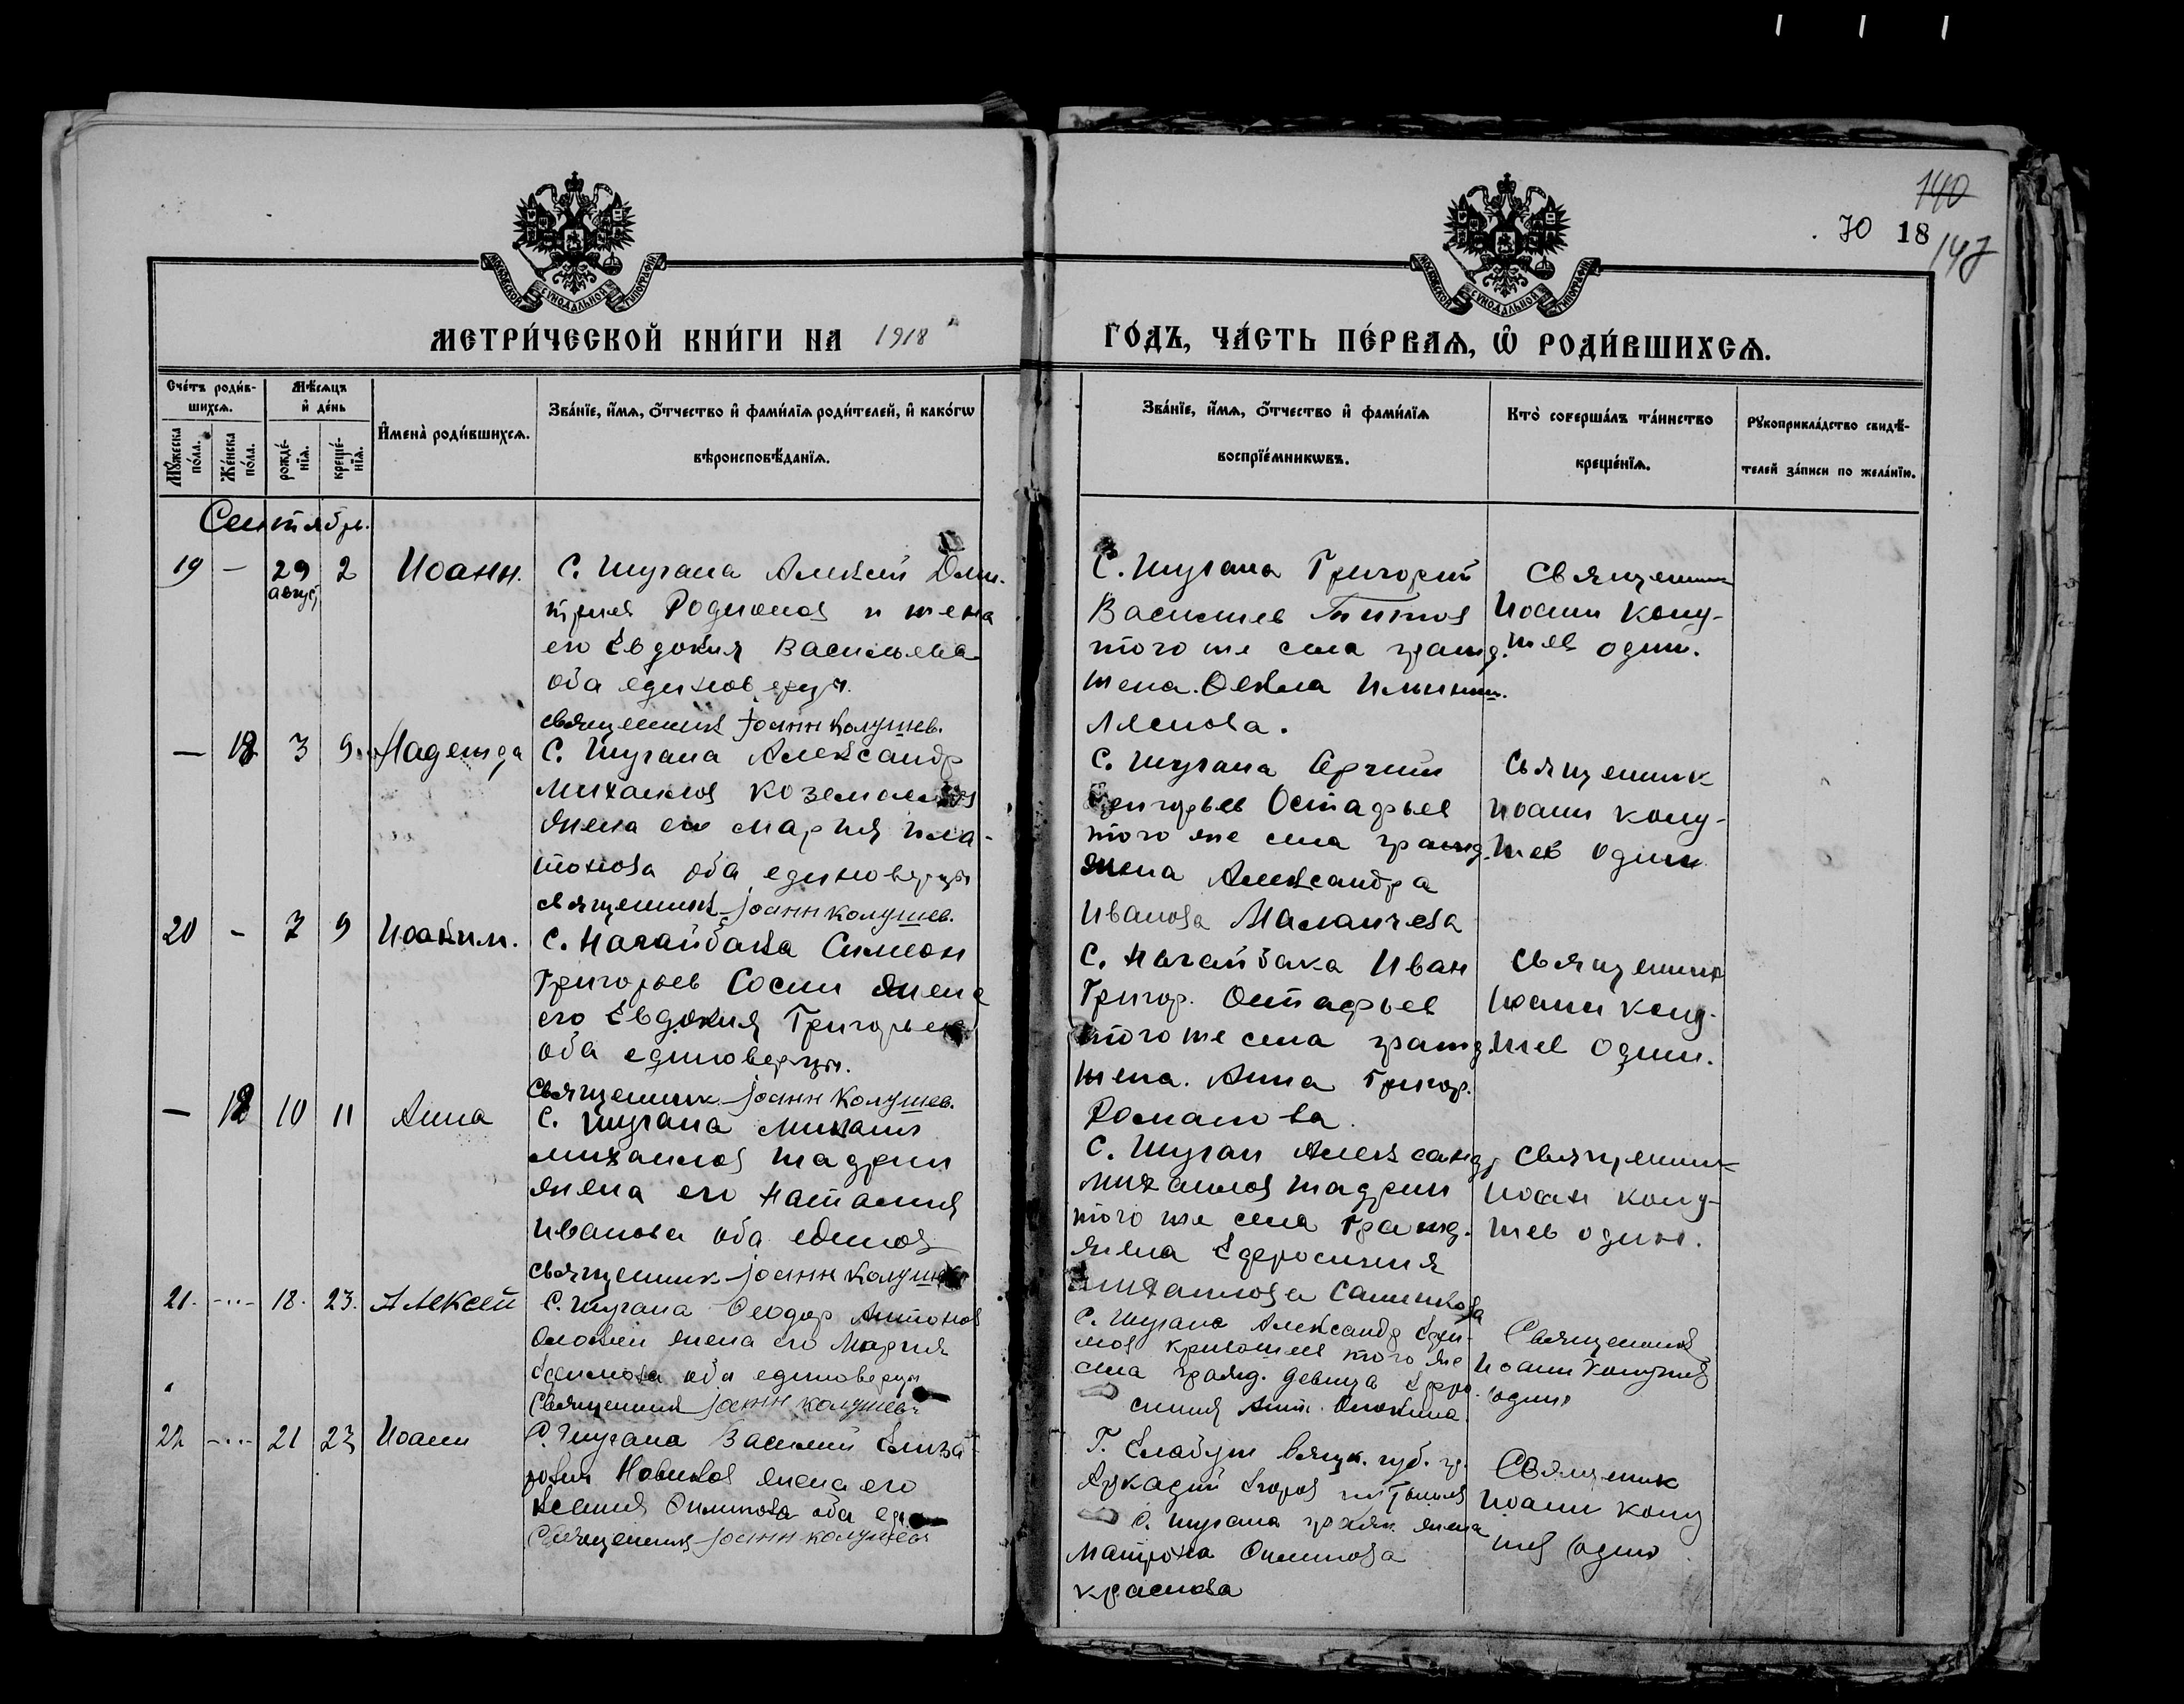 140
70 18
147
МОСКОВСКОЙ СѴНОДАЛЬНОЙ ТИПОГРАФІИ
МОСКОВСКОЙ СѴНОДАЛЬНОЙ ТИПОГРАФІИ
МЕТРИ́ЧЕСКОЙ КНИ́ГИ НА 1918
ГО́ДЪ, ЧА́СТЬ ПЕ́РВАѦ, Ѡ҆ РОДИ́ВШИХСѦ.
Сче́тъ роди́в-
шихсѧ.
Мѣ́сѧцъ
и҆ де́нь
Мꙋ́жеска
по́ла.
Же́нска
по́ла.
рожде́-
нїѧ.
креще́-
нїѧ.
И҆мена̀ роди́вшихсѧ.
Зва́нїе, и҆́мѧ, ѻ҆́тчество и҆ фами́лїѧ роди́телей, и҆ како́гѡ
вѣроисповѣ́данїѧ.
Зва́нїе, и҆́мѧ, ѻ҆́тчество и҆ фами́лїѧ
воспрїе́мникѡвъ.
Кто̀ соверша́лъ та́инство
креще́нїѧ.
Рꙋкоприкла́дство свидѣ́-
телей за́писи по жела́нїю.
Сентябрь.
19 — 29 2 Иоанн.
август
С. Шугана Алексей Дми-
триев Родионов и жена
его Евдокия Васильева
оба единоверцы.
священник Іоанн Колушев.
С. Шугана Григорий
Васильев Титов
того же села гражд.
жена. Фекла
Ляпова.
Священник
Иоанн Колу-
шев один.
— 18 3 9 Надежда
С. Шугана Александр
Михаилов
жена его Мария Пла-
тонова оба единоверцы
священник Іоанн Колушев.
С. Шугана
Григорьев Остафьев
того же села гражд.
жена Александра
Иванова Маланчева
Священник
Иоанн Колу-
шев один
20 — 7 9 Иоаким.
С. Нагайбака Симеон
Григорьев Сосин жена
его Евдокия Григорьева
оба единоверцы.
Священник Іоанн Колушев.
С. Нагайбака Иван
Григор. Остафьев
того же села гражд.
жена. Анна Григор.
Романова.
Священник
Иоанн Колу-
шев один.
— 10 11 Анна
С. Шугана Михаил
Михаилов Шадрин
жена его Наталия
Иванова оба единов
священник Іоанн Колушев
С. Шуган Александр
Михаилов Шадрин
того же села гражд.
жена Ефросиния
Михаилова Санникова
Священник
Иоан Колу-
шев один.
21. — 18. 23. Алексей
С. Шугана Феодор Антонов
жена его Мария
Ефимова оба единоверцы
Священник Іоанн Колушев
С. Шугана Александр Ефи-
мов того же
села гражд. девица Ефро-
синия Ант.
Священник
Иоанн Колушев
один
22 — 21 23 Иоанн
С. Шугана Василий Елиза-
ров Новиков жена его
Ксения Филипова оба еди
Священник Іоанн Колушев
Г. Елабуги Вятск. губ. гр.
Аркадий Егоров
С. Шугана гражд. жена
Матрона Филипова
Краснова
Священник
Иоанн Колу
шев один